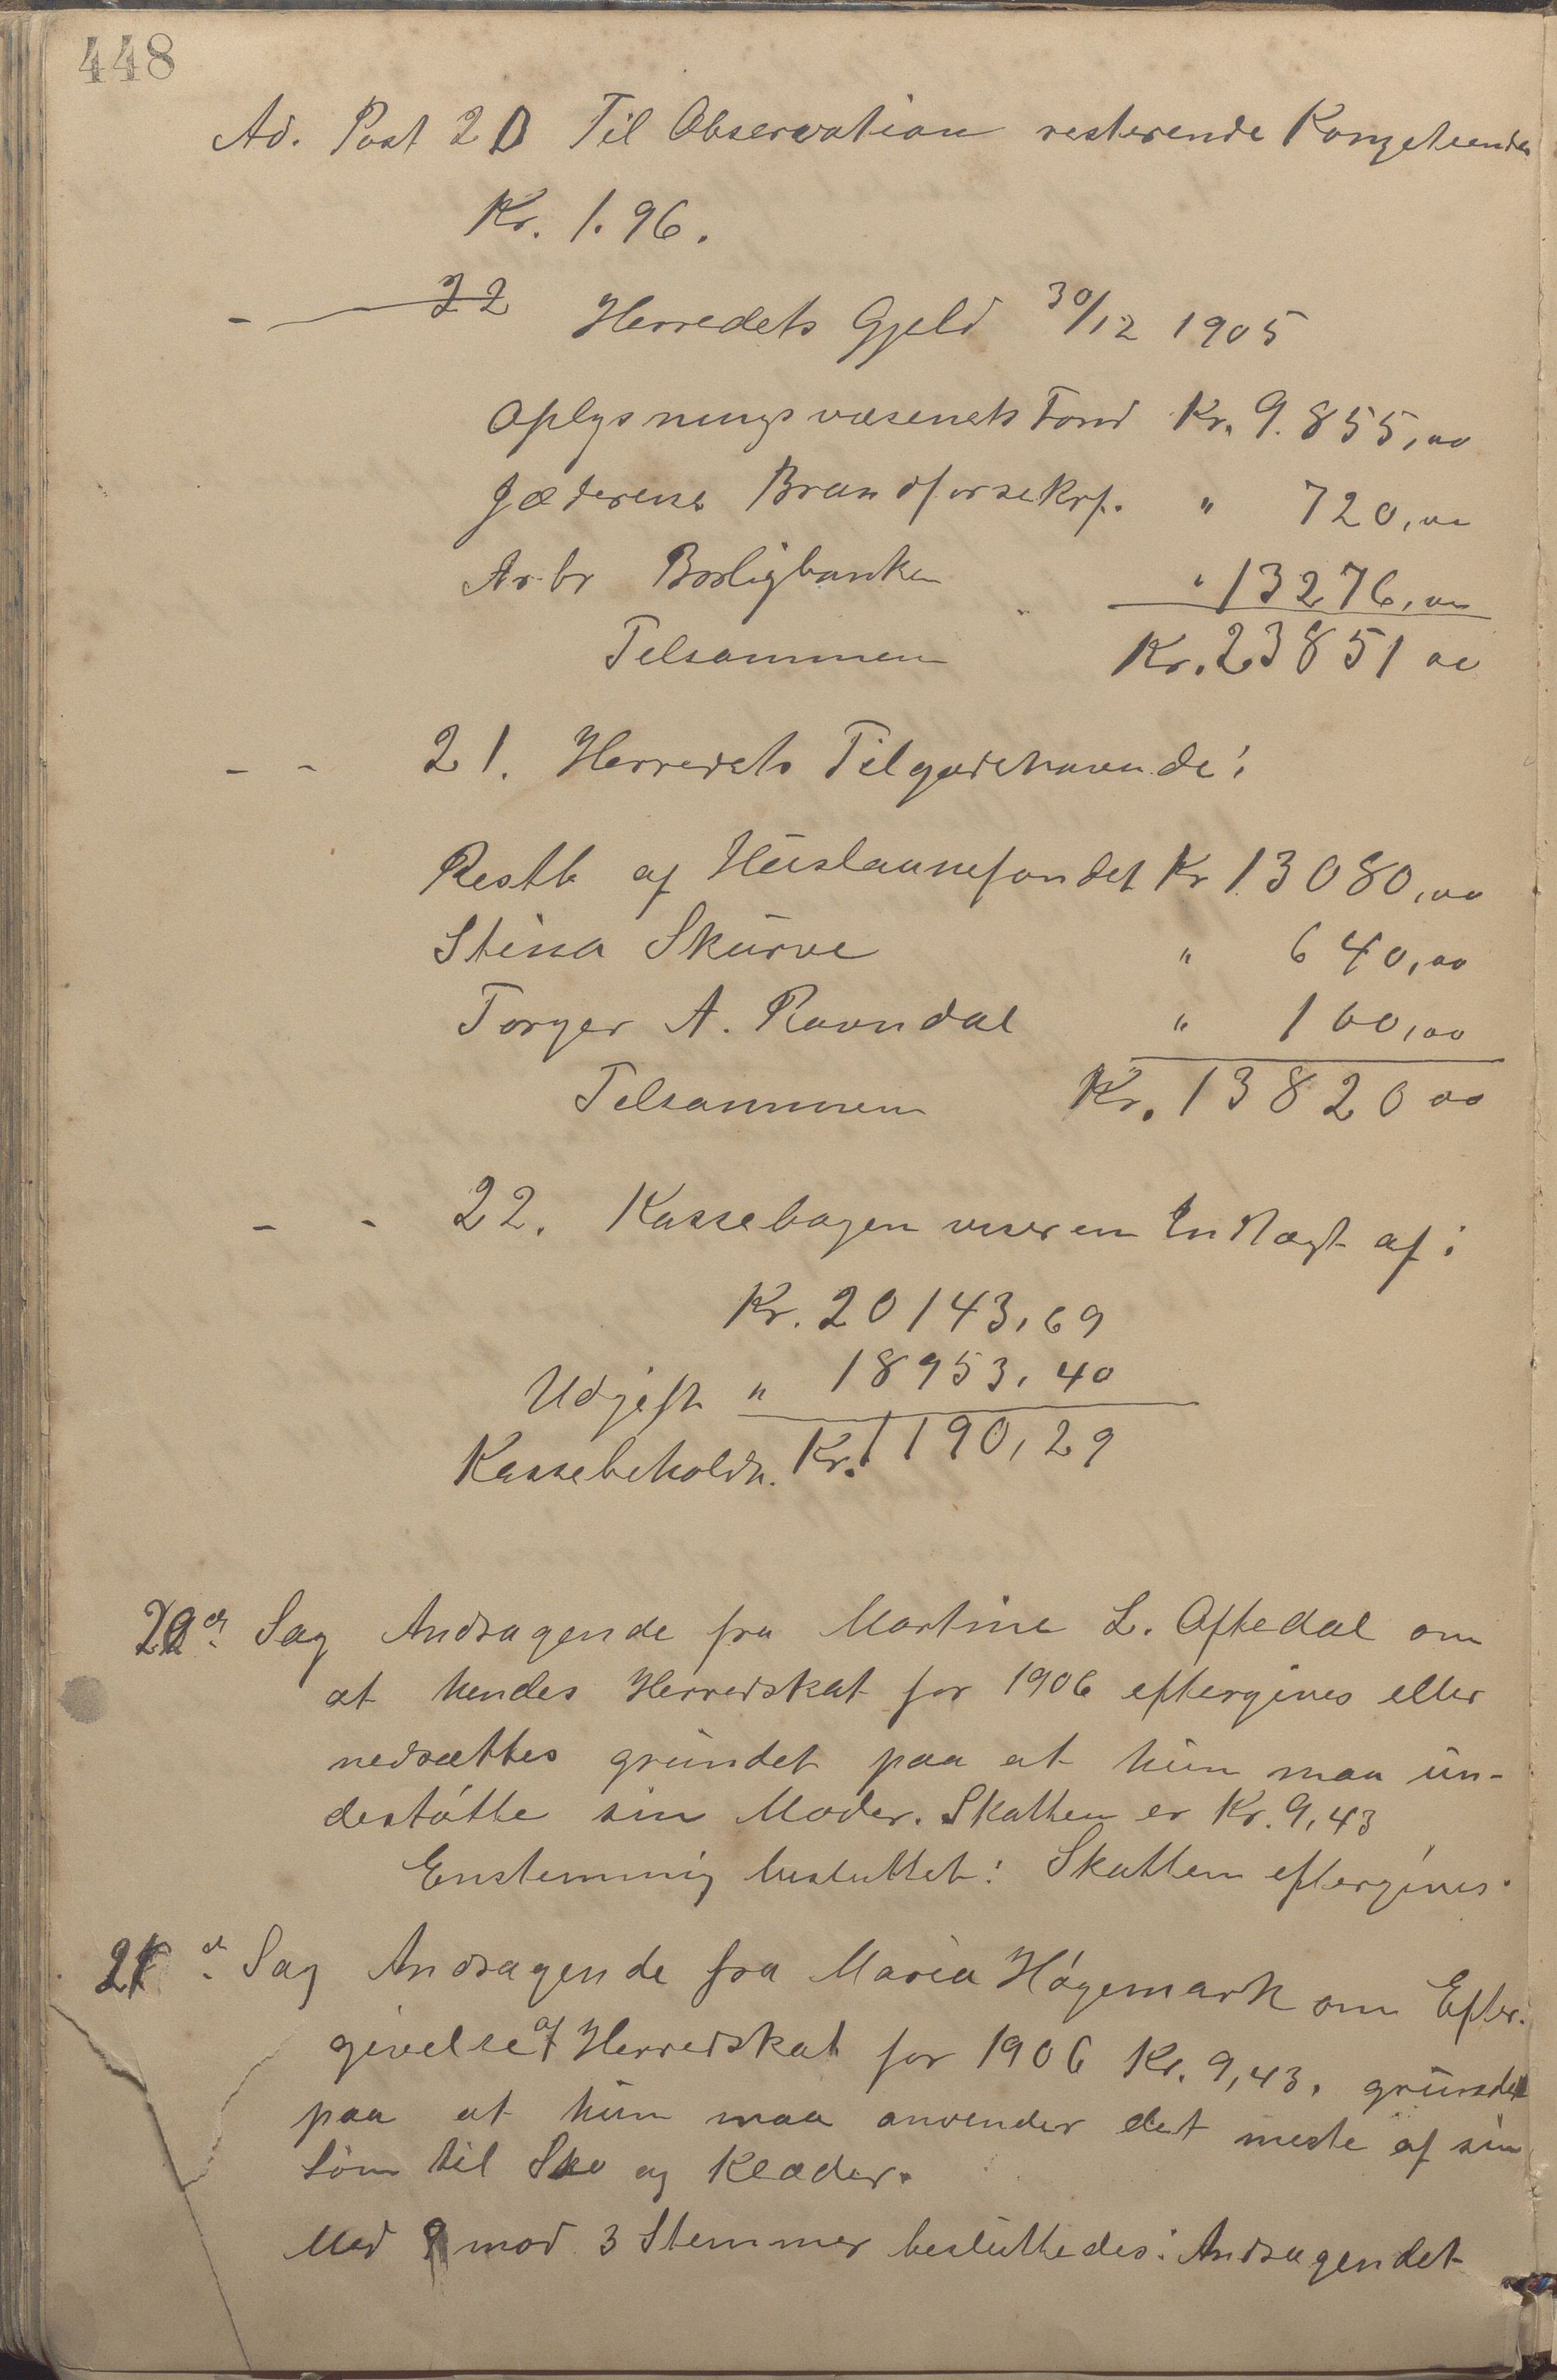 448
Ad. Post 20 Til Observation resterende Kongetiende
Kr. 1.96.
- 22 Herredets Gjeld 30/12 1905
Oplysningsvæsenets Fond Kr. 9.855,00
Jæderens Brandforsekrf. " 720,00
Ar.br Boligbanken " 13276,00
Tilsammen Kr. 23851 00
- - 21. Herredets Tilgodehavende:
Restb af Huslaanefondet Kr 13080,00
Stina Skurve " 640,00
Torger A. Ravndal " 100,00
Tilsammen Kr. 13820 00
- - 22. Kassebogen viser en Indtægt af:
Kr. 20143,69
Udgift " 18953,40
Kassebeholdn. Kr. 1190,29
Sag Andragende fra Martine L. Oftedal om
at hendes Herredskat for 1906 eftergives eller
nedsættes grundet paa at hun maa un-
destøtte sin Moder. Skatten er Kr. 9,43
Enstemmig besluttet: Skatten eftergives.
21 de Sag Andragende fra Maria Høgemark om Efter-
givelse af Herredskat for 1906 Kr. 9,43, grundet
paa at hun maa anvender det meste af sin
Løn til Sko og Klæder.
Med 9 mod 3 Stemmer besluttedes: Andragendet